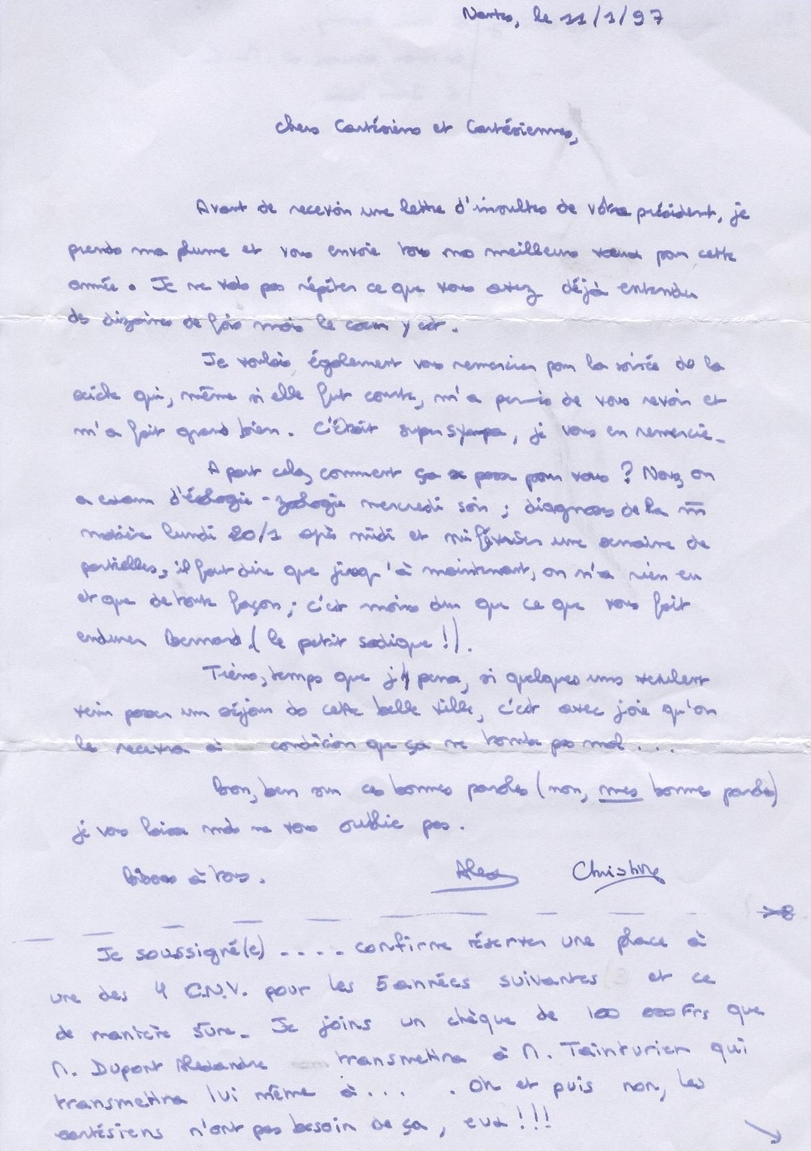 Nantes, le 11/1/97
Chers Cartésiens et Cartésiennes,
Avant de recevoir une lettre d'insultes de votre président, je
prends ma plume et vous envoie tous mes meilleurs vœux pour cette
année. Je ne vais pas répéter ce que vous avez déjà entendu
des dizaines de fois mais le cœur y est.
Je voulais également vous remercier pour la soirée de la
qui, même si elle fut courte, m'a permis de vous revoir et
m'a fait grand bien. C'était super sympa, je vous en remercie.
A part cela, comment ça se passe pour vous ? Nous, on
a exam d'écologie - zoologie mercredi soir ; diagnoses de la m̄
matière lundi 20/1 après midi et mi-février une semaine de
partielles, il faut dire que jusqu'à maintenant, on n'a rien eu
et que de toute façon, c'est moins dur que ce que vous fait
endurer Bernard (le petit sadique !).
Tiens, temps que j'y pense, si quelques uns veulent
venir passer un séjour ds cette belle ville, c'est avec joie qu'on
le recevra à condition que ça ne tombe pas mal...
Bon, ben sur ces bonnes paroles (non, mes bonnes paroles)
je vous laisse mais ne vous oublie pas.
Bisous à tous. Alex Christine
Je soussigné(e) .... confirme réserver une place à
une des 4 C.N.V. pour les 5 années suivantes et ce
de manière sûre. Je joins un chèque de 100 000 Frs que
M. Dupont Alexandre transmettra à M. Tainturier qui
transmettra lui même à... . Oh et puis non, les
cartésiens n'ont pas besoin de ça, eux !!!